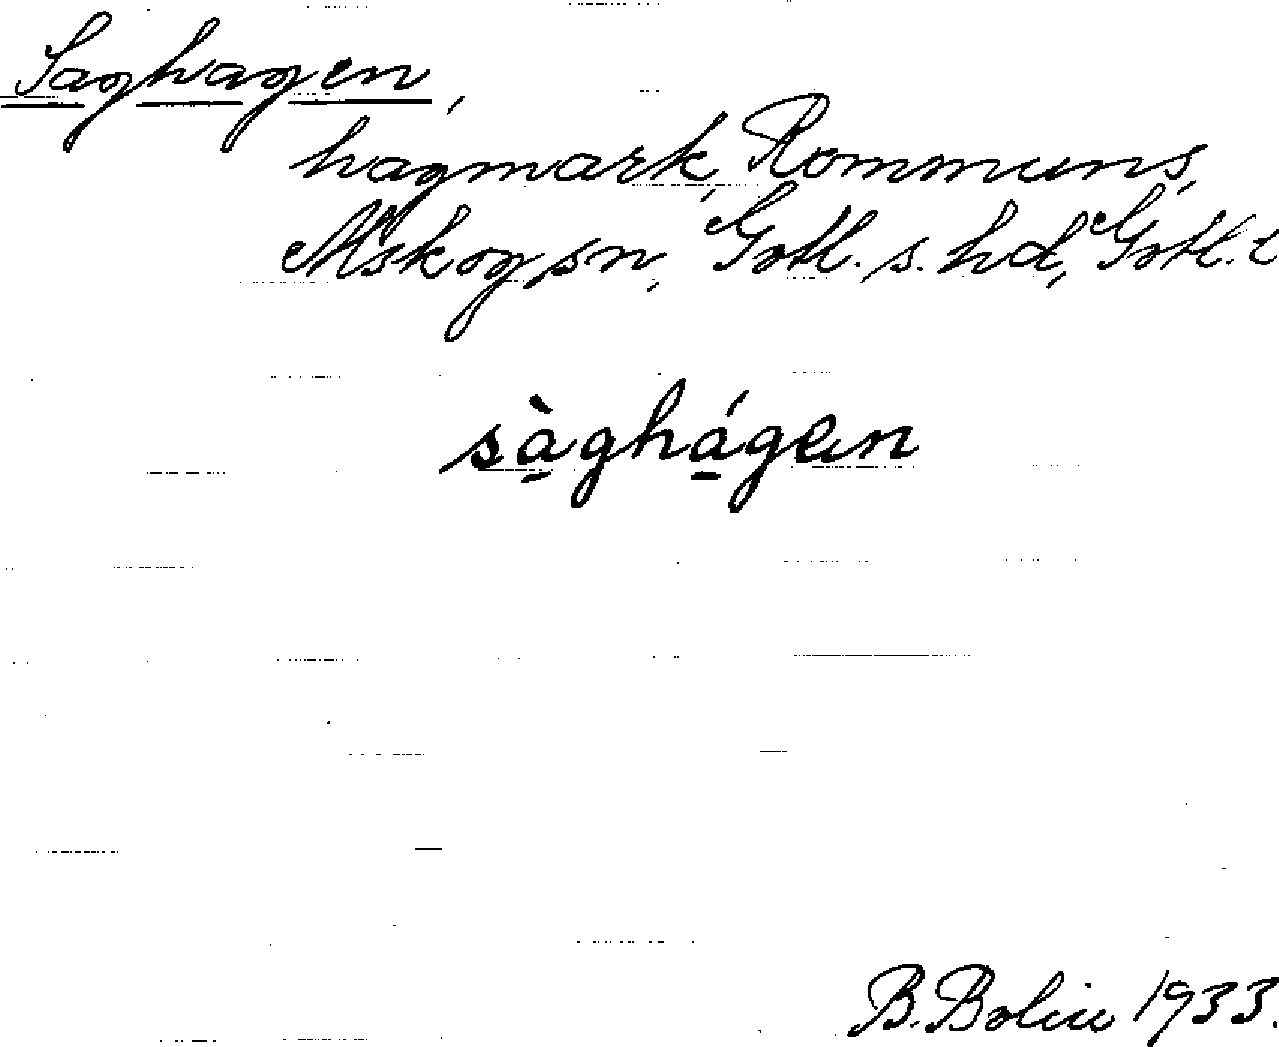 Saghagen,
hagmark, Rommuns,
Alskog sn, Gotl. s. hd, Gotl. l
sàghágen
B. Bolin 1933.